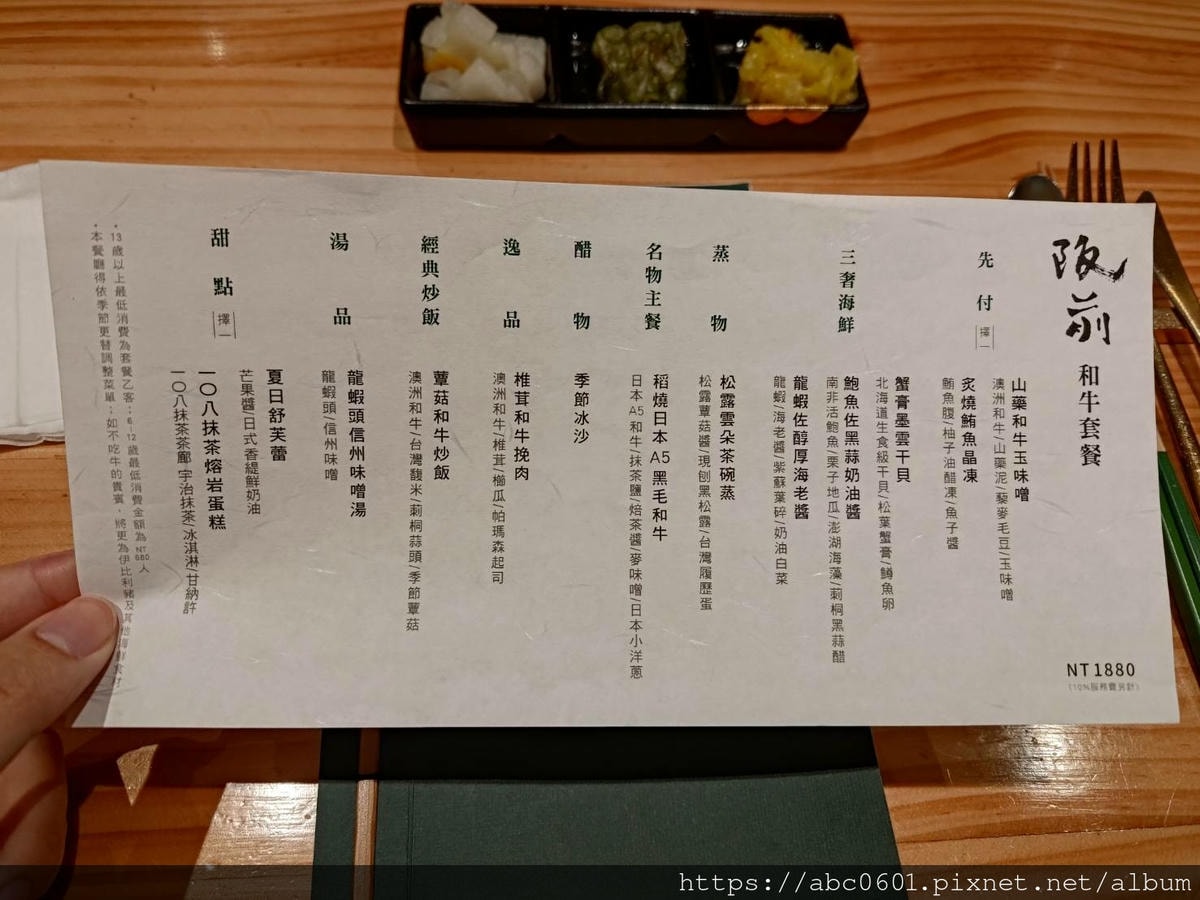 阪前
和牛套餐
NT1880
(10%服務費另計)
先付
擇一
山藥和牛玉味噌
澳洲和牛/山藥泥/藜麥毛豆/玉味噌
炙燒鮪魚晶凍
鮪魚腹/柚子油醋凍/魚子醬
三奢海鮮
蟹膏墨雲干貝
北海道生食級干貝/松葉蟹膏/鱒魚卵
鮑魚佐黑蒜奶油醬
南非活鮑魚/栗子地瓜/澎湖海藻/莿桐黑蒜醋
龍蝦佐醇厚海老醬
龍蝦/海老醬/紫蘇葉碎/奶油白菜
蒸物
松露雲朵茶碗蒸
松露蕈菇醬/現刨黑松露/台灣履歷蛋
名物主餐
稻燒日本A5黑毛和牛
日本A5和牛/抹茶鹽/焙茶醬/麥味噌/日本小洋蔥
醋物
季節冰沙
逸品
椎茸和牛挽肉
澳洲和牛/椎茸/櫛瓜/帕瑪森起司
經典炒飯
蕈菇和牛炒飯
澳洲和牛/台灣馥米/莿桐蒜頭/季節蕈菇
湯品
龍蝦頭信州味噌湯
龍蝦頭/信州味噌
甜點
擇一
夏日舒芙蕾
芒果醬/日式香緹鮮奶油
一〇八抹茶熔岩蛋糕
一〇八抹茶茶廊 宇治抹茶/冰淇淋/甘納許
·13歲以上最低消費為套餐乙客;6-12歲最低消費金額為NT680/人
·本餐廳得依季節更替調整菜單;如不吃牛的貴賓,將更為伊比利豬及其他海鮮食材
https://abc0601.pixnet.net/album